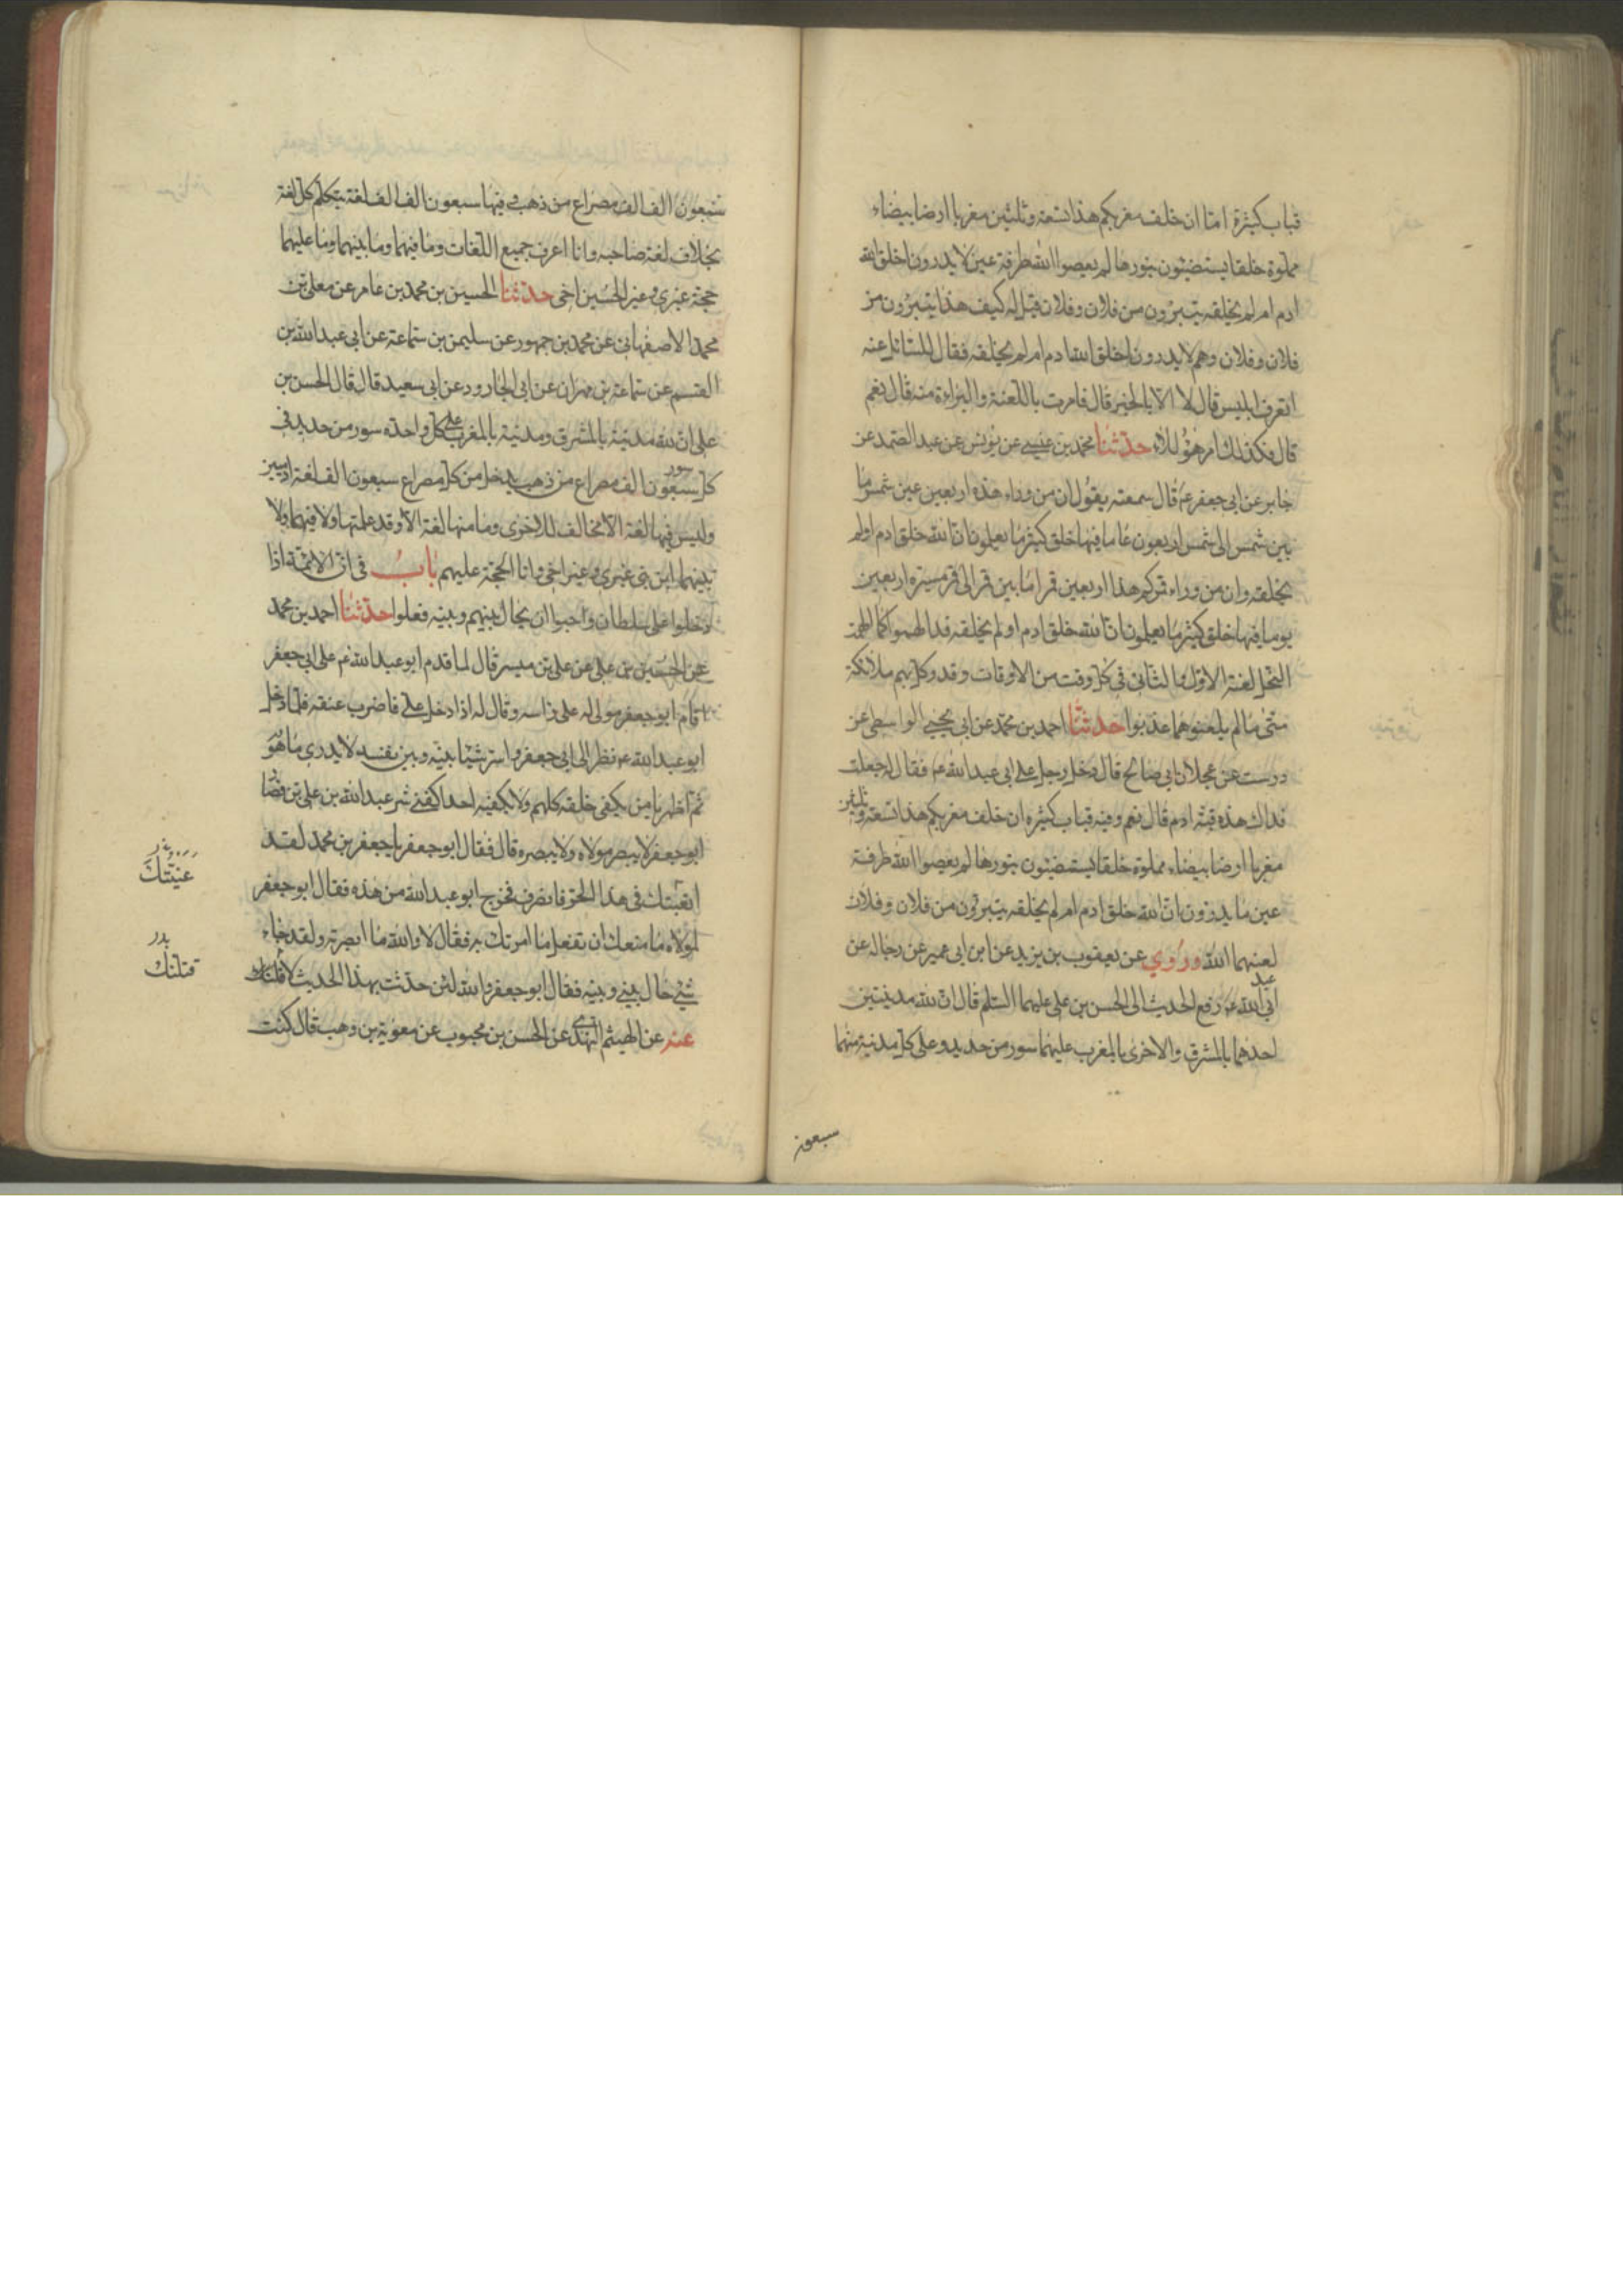 قباب كثيرة اما ان خلف مغربكم هذا تسعة وثلثين مغربا ارضا بيضاء
مملوة خلقا يستضيئون بنورها لم يعصوا الله طرفة عين لا يدرون اخلق الله
ادم ام لم يخلقه يتبرؤن من فلان وفلان قيل له كيف هذا يتبرؤن من
فلان وفلان وهم لا يدرون اخلق الله ادم ام لم يخلقه فقال للسائل عنه
اتعرف ابليس قال لا الا بالخبر قال فامرت باللعنة والبراءة منه قال نعم
قال فكذلك امر هؤلاء حدثنا محمد بن عيسى عن يونس عن عبد الصمد عن
جابر عن ابي جعفر ع قال سمعته يقول ان من وراء هذه اربعين عين شمس ما
بين شمس الى شمس اربعون عاما فيها خلق كثير ما يعلمون ان الله خلق ادم اولم
يخلقه وان من وراء قمركم هذا اربعين قمرا ما بين قمر الى قمر مسيرة اربعين
يوما فيها خلق كثير ما يعلمون ان الله خلق ادم او لم يخلقه قد الهموا كما الهمت
النحل لعنة الاول والثاني في كل وقت من الاوقات وقد وكل بهم ملائكة
متى ما لم يلعنوهما عذبوا حدثنا احمد بن محمد عن ابي يحيى الواسطي عن
درست عن عجلان ابي صالح قال دخل رجل على ابي عبد الله ع فقال له جعلت
فداك هذه قبة ادم قال نعم وفيه قباب كثيره ان خلف مغربكم هذا تسعة وثلثين
مغربا ارضا بيضاء مملوة خلقا يستضيئون بنورها لم يعصوا الله طرفة
عين ما يدرون ان الله خلق ادم ام لم يخلقه يتبرؤن من فلان وفلان
لعنهما الله وروي عن يعقوب بن يزيد عن ابن ابي عمير عن رجاله عن
ابي عبد الله ع رفع الحديث الى الحسن بن علي عليهما السلم قال ان لله مدينتين
احدهما بالمشرق والاخرى بالمغرب عليهما سور من حديد وعلى كل مدنية منهما
سبعون
سبعون الف الف مصراع من ذهب وفيها سبعون الف الف لغة يتكلم كل لغة
بخلاف لغة صاحبه وانا اعرف جميع اللغات وما فيهما وما بينهما وما عليهما
حجة غيري وغير الحسين اخي حدثنا الحسين بن محمد بن عامر عن معلى بن
محمد الاصفهاني عن محمد بن جمهور عن سليمن بن سماعة عن ابي عبد الله بن
القسم عن سماعة بن مهران عن ابي الجارود عن ابي سعيد قال قال الحسن بن
علي ان لله مدينة بالمشرق ومدنية بالمغرب على كل واحده سور من حديد في
كل سور سبعون الف مصراع من ذهب يدخل من كل مصراع سبعون الف لغة ادميين
وليس فيها لغة الا مخالف للاخرى وما منها لغة الا وقد علمتها ولا فيهما ولا
بينهما ابن نبي غيري وغير اخي وانا الحجة عليهم باب في ان الائمة اذا
دخلوا على سلطان واحبوا ان يحال بينهم وبينه فعلوا حدثنا احمد بن محمد
عن الحسين بن علي عن علي بن ميسر قال لما قدم ابو عبد الله ع على ابي جعفر
قام ابو جعفر مولى له على راسه وقال له اذا دخل علي فاضرب عنقه فلما دخل
ابو عبد الله ع نظر الى ابي جعفر واسر شيئا بينه وبين نفسه لا يدري ما هو
ثم اظهر يا من يكفي خلقه كلهم ولا يكفيه احد اكفني شر عبد الله بن علي بن فصار
ابو جعفر لا يبصر مولاه ولا يبصره قال فقال ابو جعفر يا جعفر بن محمد لقد
اتعبتك في هذا الحر فانصرف فخرج ابو عبد الله من هذه فقال ابو جعفر
عنيتك
لمولاه ما منعك ان تفعل ما امرتك به فقال لا والله ما ابصرته ولقد جاء
شئ حال بيني وبينه فقال ابو جعفر والله لئن حدثت بهذا الحديث لاقتلنك
قتلتك
عنه عن الهيثم النهدي عن الحسن بن محبوب عن معوية بن وهب قال كنت